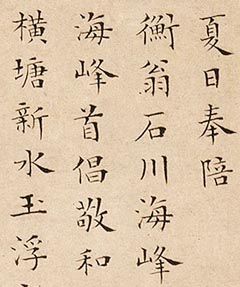 夏日奉陪
衡翁石川海峰
海峰首倡敬和
橫塘新水玉浮